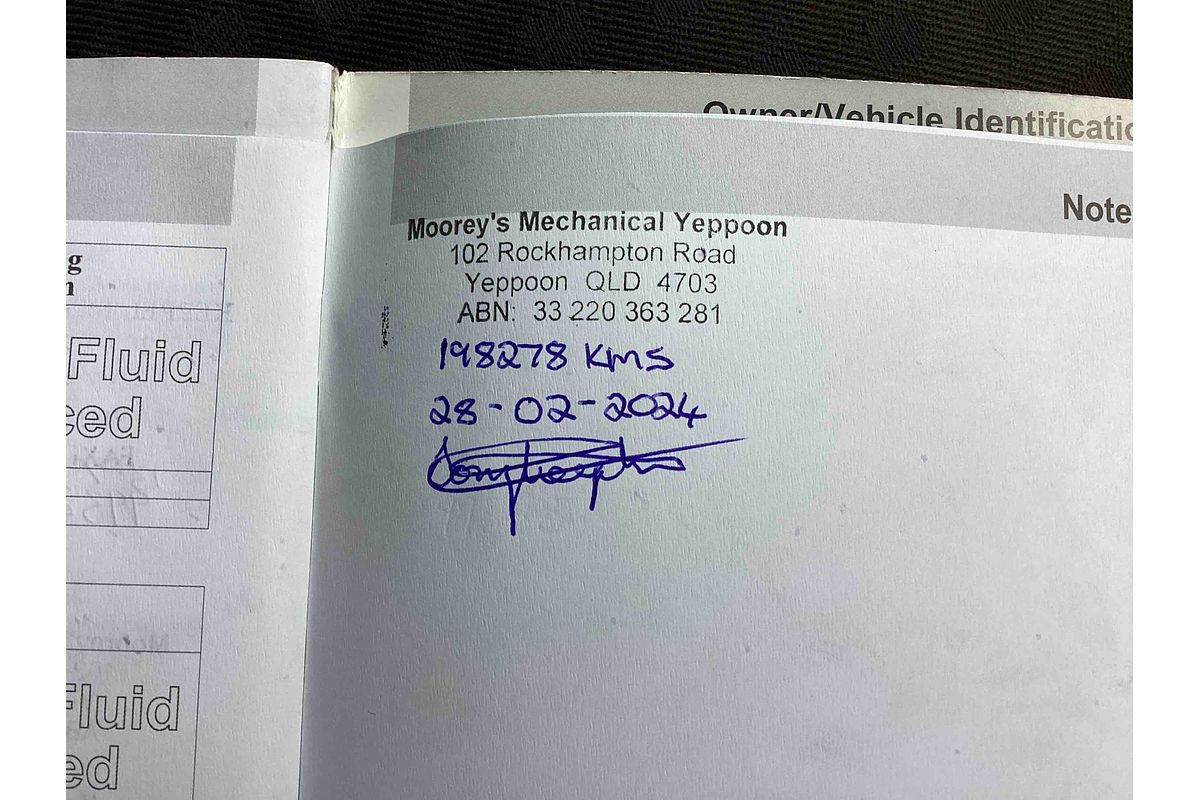 Owner/Vehicle Identificatio
Note
Moorey's Mechanical Yeppoon
102 Rockhampton Road
Yeppoon QLD 4703
ABN: 33 220 363 281
198278 KMS
28-02-2024
g
n
Fluid
ced
Fluid
ed